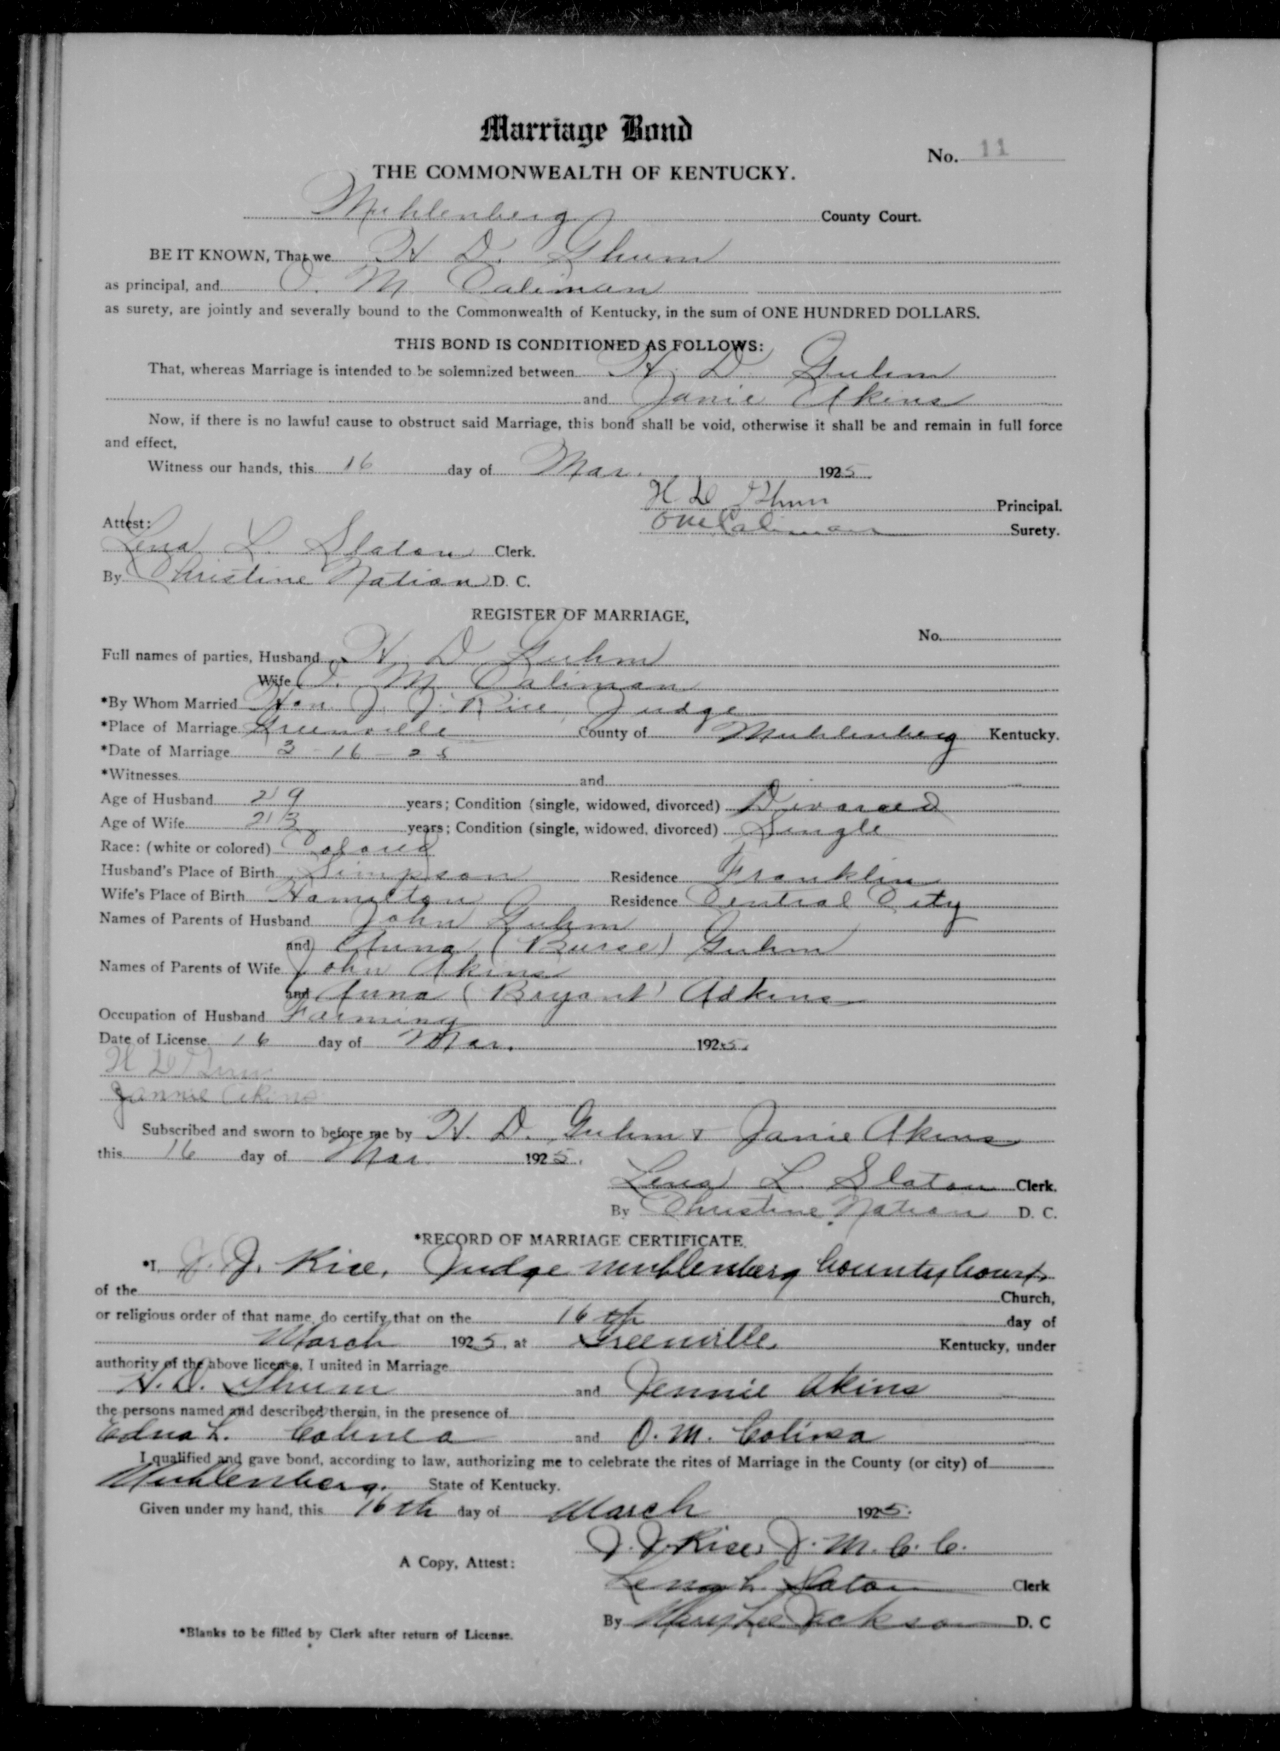 Marriage Bond
No. 11
THE COMMONWEALTH OF KENTUCKY.
Muhlenberg County Court.
BE IT KNOWN, That we H D. Ghum
as principal, and O. M Caliman
as surety, are jointly and severally bound to the Commonwealth of Kentucky, in the sum of ONE HUNDRED DOLLARS.
THIS BOND IS CONDITIONED AS FOLLOWS:
That, whereas Marriage is intended to be solemnized between H. D. Guhm
and Janie Akens
Now, if there is no lawful cause to obstruct said Marriage, this bond shall be void, otherwise it shall be and remain in full force
and effect,
Witness our hands, this 16 day of Mar. 1925.
H D Ghum Principal.
Attest: OM Caliman Surety.
Lena L. Slaton Clerk.
By Christine Nation D. C.
REGISTER OF MARRIAGE,
No.
Full names of parties, Husband H. D Guhm
Wife O. M. Caliman
*By Whom Married Hon J. J. Rice, Judge
*Place of Marriage Greenville County of Muhlenberg Kentucky.
*Date of Marriage 3-16-25
*Witnesses and
Age of Husband 29 years; Condition (single, widowed, divorced) Divorced
Age of Wife 23 years; Condition (single, widowed, divorced) Single
Race: (white or colored) Colored
Husband's Place of Birth Simpson Residence Franklin
Wife's Place of Birth Hamilton Residence Central City
Names of Parents of Husband John Guhm
and Anna (Burse) Guhm
Names of Parents of Wife John Akins
and Anna (Bryant) Adkins
Occupation of Husband Farming
Date of License 16 day of Mar. 1925.
H D Ghum
Jannie Akins
Subscribed and sworn to before me by H. D. Guhm & Janie Akens
this 16 day of Mar 1925.
Lena L. Slaton Clerk.
By Christine Nation D. C.
*RECORD OF MARRIAGE CERTIFICATE.
*I, J. J. Rice, Judge Muhlenberg County Court
of the Church,
or religious order of that name, do certify that on the 16th day of
March 1925, at Greenville, Kentucky, under
authority of the above license, I united in Marriage
H. D. Ghum and Jennie Akins
the persons named and described therein, in the presence of
Edna L. and O. M.
I qualified and gave bond, according to law, authorizing me to celebrate the rites of Marriage in the County (or city) of
Muhlenberg. State of Kentucky.
Given under my hand, this 16th day of March 1925.
J. J. Rice, J. M. C. C.
A Copy, Attest:
Lena L. Slaton Clerk
By Mary Lee Jackson D. C
*Blanks to be filled by Clerk after return of License.